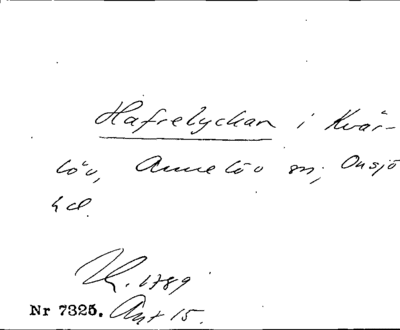 Hafrelyckan i Kvär-
löv, Annelöv sn; Onsjö
hd.
Lk. 1789
Nr 7325. Ant 15.